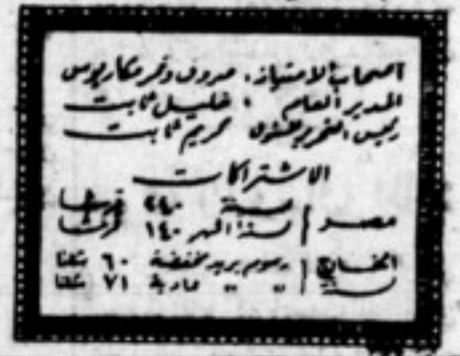 اصحاب الامتياز: صروف ونمر ومكاريوس
المدير العام : خليل ثابت
رئيس التحرير المسئول كريم ثابت
الاشتراكات
مصر سنة ٢٤٠ قرشا
ستة اشهر ١٤٠ قرشا
الخارج رسوم بريد مخفضة ٦٠ شلنا
سنة " " عادية ٧١ شلنا